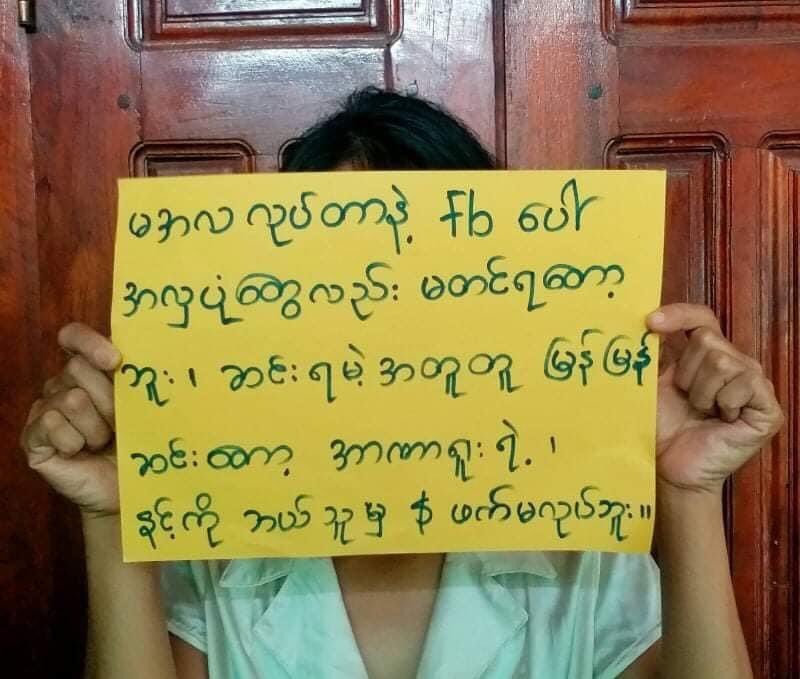 မအလ လုပ်တာနဲ့ fb ပေါ်
အလှပုံတွေလည်း မတင်ရတော့
ဘူး ၊ ဆင်းရမဲ့အတူတူ မြန်မြန်
ဆင်းတော့ အာဏာရူးရဲ့ ၊
နင့်ကို ဘယ်သူမှ $ ဖက်မလုပ်ဘူး ။